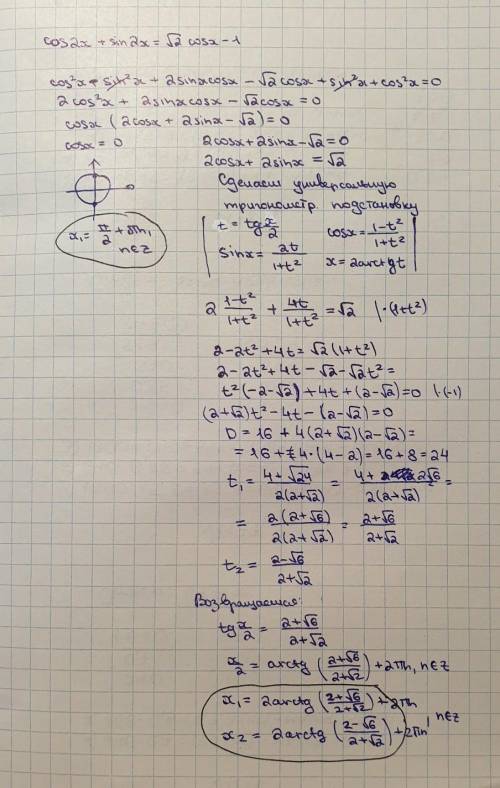 cos2x + sin2x = √2 cosx - 1
cos²x - sin²x + 2sinxcosx - √2 cosx + sin²x + cos²x = 0
2cos²x + 2sinxcosx - √2cosx = 0
cosx (2cosx + 2sinx - √2) = 0
cosx = 0
2cosx + 2sinx - √2 = 0
2cosx + 2sinx = √2
Сделаем универсальную
тригонометр. подстановку
t = tg x/2
cosx = (1-t²)/(1+t²)
sinx = 2t/(1+t²)
x = 2arctg t
x₁ = π/2 + πn,
n∈Z
2 (1-t²)/(1+t²) + 4t/(1+t²) = √2 |·(1+t²)
2 - 2t² + 4t = √2 (1+t²)
2 - 2t² + 4t - √2 - √2t² =
t²(-2-√2) + 4t + (2-√2) = 0 |·(-1)
(2+√2)t² - 4t - (2-√2) = 0
D = 16 + 4(2+√2)(2-√2) =
= 16 + 4·(4-2) = 16 + 8 = 24
t₁ = (4+√24)/(2(2+√2)) = (4+2√6)/(2(2+√2)) =
= (2(2+√6))/(2(2+√2)) = (2+√6)/(2+√2)
t₂ = (2-√6)/(2+√2)
Возвращаемся:
tg x/2 = (2+√6)/(2+√2)
x/2 = arctg ((2+√6)/(2+√2)) + 2πn, n∈Z
x₁ = 2arctg ((2+√6)/(2+√2)) + 2πn
x₂ = 2arctg ((2-√6)/(2+√2)) + 2πn, n∈Z